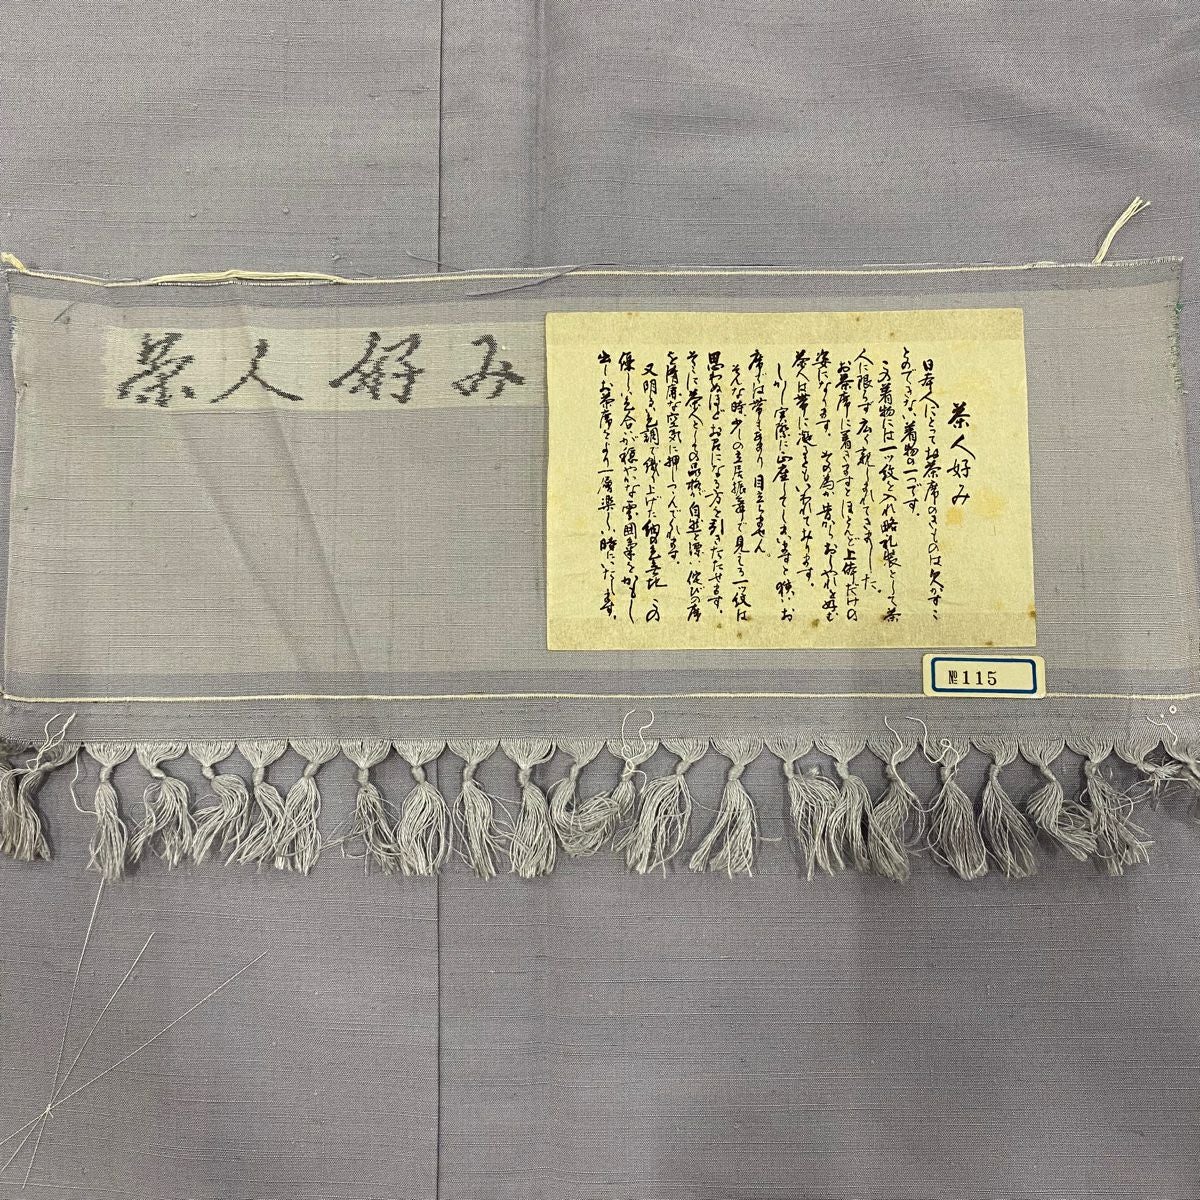 茶人好み
茶人好み
日本人にとってお茶席のきものは欠かすこ
とのできない着物の一つです。
この着物には一ッ紋を入れ略礼装として茶
人に限らず広く親しまれてきました。
お茶席に着きますとほとんど上体だけの
姿になります。その為か昔からおしゃれを好む
茶人は帯に凝るともいわれております。
しかし実際に正座してしまいますと狭いお
席では帯もあまり目立ちません。
そんな時少しの立居振舞で見える一ッ紋は
思わぬほどお召になる方を引きたたせます。
そこに茶人としての品格が自然と漂い侘びの席
を清廉な空気に押しつつんでくれます。
又明るい色調で織り上げた紬の色無地 この
優しい色合いが穏やかな雰囲気をかもし
出しお茶席をより一層楽しい時にいたします。
№115